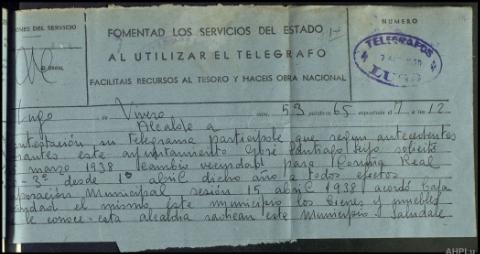 ONES DEL SERVICIO
FOMENTAD LOS SERVICIOS DEL ESTADO
AL UTILIZAR EL TELEGRAFO
FACILITAIS RECURSOS AL TESORO Y HACEIS OBRA NACIONAL
NUMERO
TELEGRAFOS
LUGO
Lugo Vivero 53 palabras 65 depositado el 7 a las 12
Alcalde a
contestación su telegrama participole que según antecedentes
este ayuntamiento José solicitó
marzo 1938 cambio vecindad para Coruña Real
3º desde 1º abril dicho año a todos efectos
Corporación Municipal sesión 15 abril 1938 acordó baja
vecindad el mismo. Este municipio los bienes y muebles
le conoce esta alcaldía este Municipio. Saludale
AHPLu